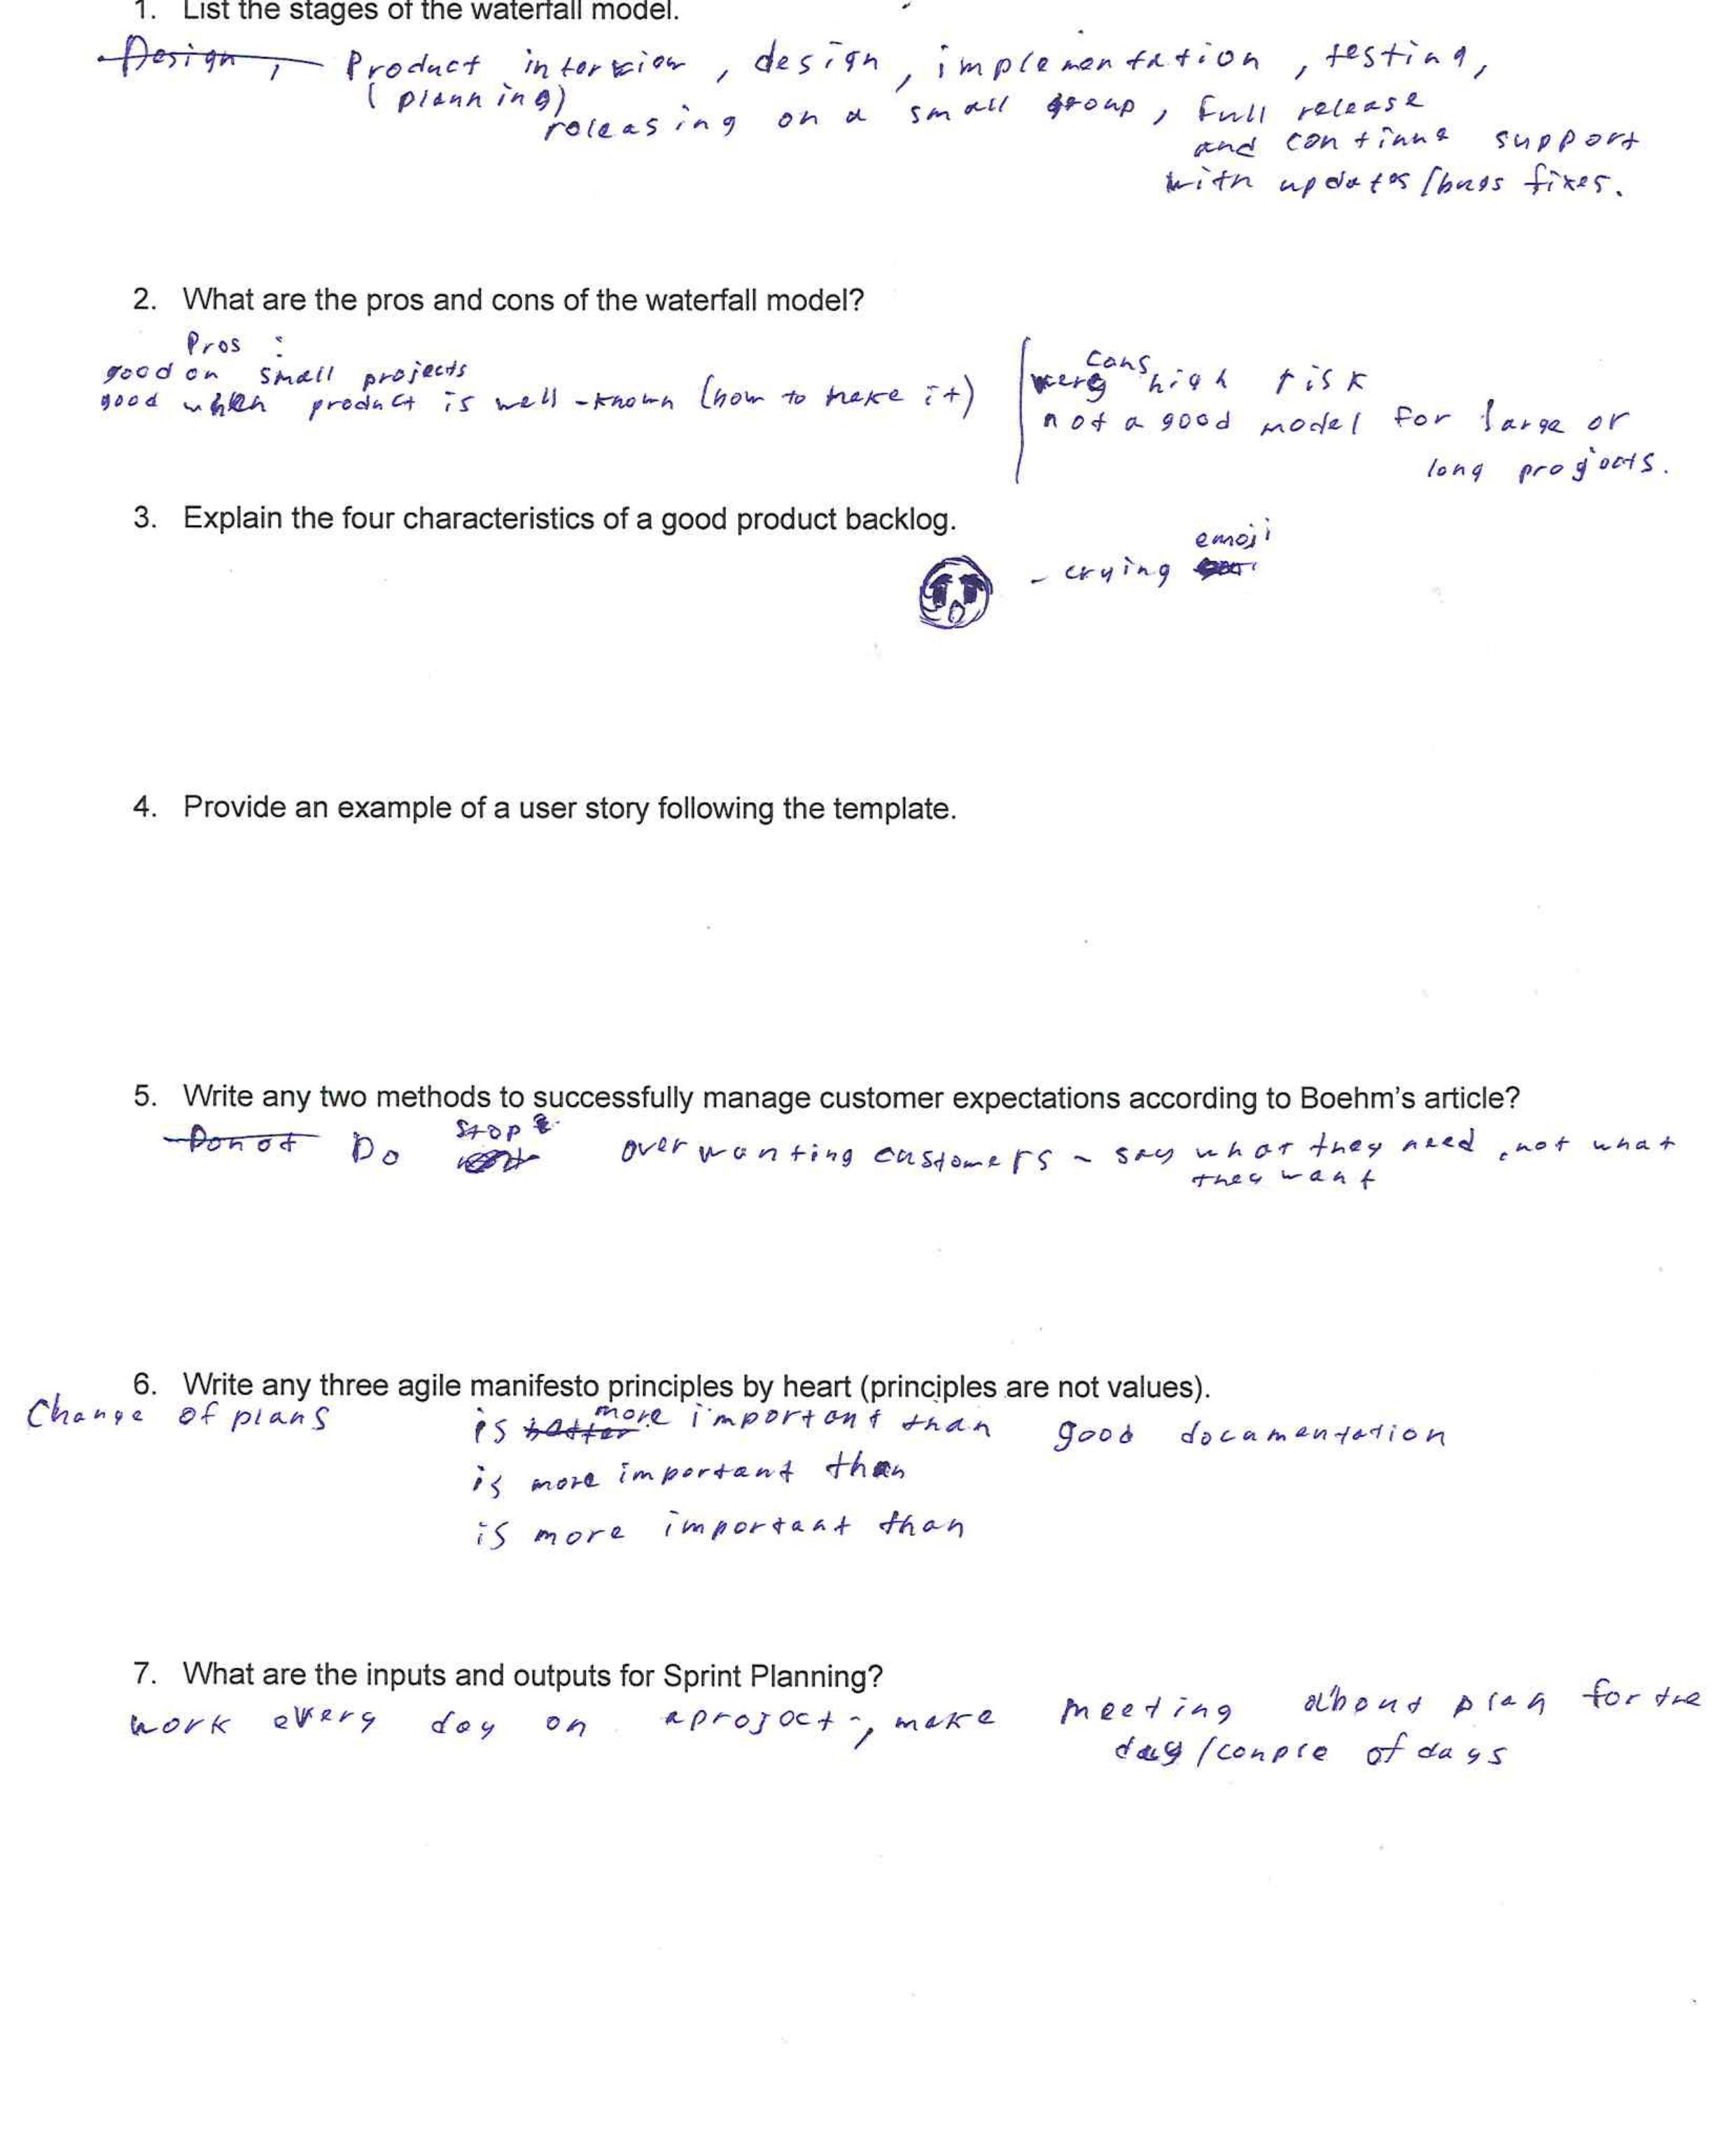 1. List the stages of the waterfall model.
Design, Product interview, design, implementation, testing,
(planning)
releasing on a small group, full release
and continue support
with updates/bugs fixes.
2. What are the pros and cons of the waterfall model?
Pros :
good on small projects
good when product is well-known (how to make it)
Cons
very high risk
not a good model for large or
long projects.
3. Explain the four characteristics of a good product backlog.
emoji
- crying
4. Provide an example of a user story following the template.
5. Write any two methods to successfully manage customer expectations according to Boehm's article?
Do not Do stop overwanting customers - say what they need, not what
they want
6. Write any three agile manifesto principles by heart (principles are not values).
Change of plans is better more important than good documentation
is more important than
is more important than
7. What are the inputs and outputs for Sprint Planning?
work every day on a project, make meeting about plan for the
day/couple of days